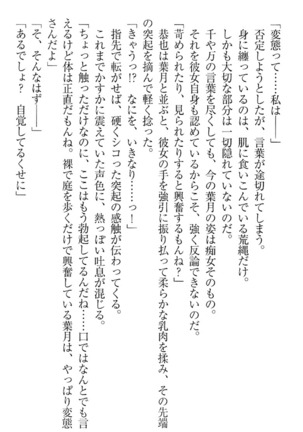 「変態って……私は――」
否定しようとしたが、言葉が途切れてしまう。
身に纏っているのは、肌に食いこんでいる荒縄だけ。
しかも大切な部分は一切隠れていないのだ。
千や万の言葉を尽くしても、今の葉月の姿は痴女そのもの。
それを彼女自身も認めているからこそ、強く反論できないのだ。
「苛められたり、見られたりすると興奮するもんね?」
恭也は葉月と並ぶと、彼女の手を強引に振り払って柔らかな乳肉を揉み、その先端
の突起を摘んで軽く捻った。
「きゃうっ!? なにを、いきなり……っ!」
指先で転がせば、硬くシコった突起の感触が伝わってくる。
これまでかすかに震えていた声色に、熱っぽい吐息が混じる。
「ちょっと触っただけなのに、ここはもう勃起してるんだね……口ではなんとでも言
えるけど体は正直だもんね。裸で庭を歩くだけで興奮している葉月は、やっぱり変態
さんだよ」
「そ、そんなはず――」
「あるでしょ? 自覚してるくせに」